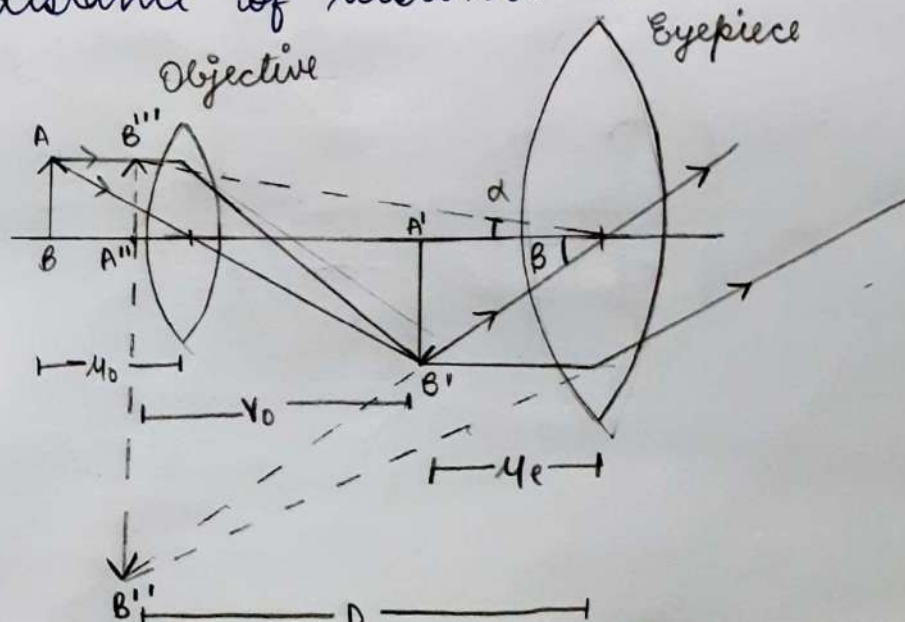 of
Eyepiece
Objective
A B'''
α
A'
B A''' β
B'
u₀
v₀
uₑ
B''
D